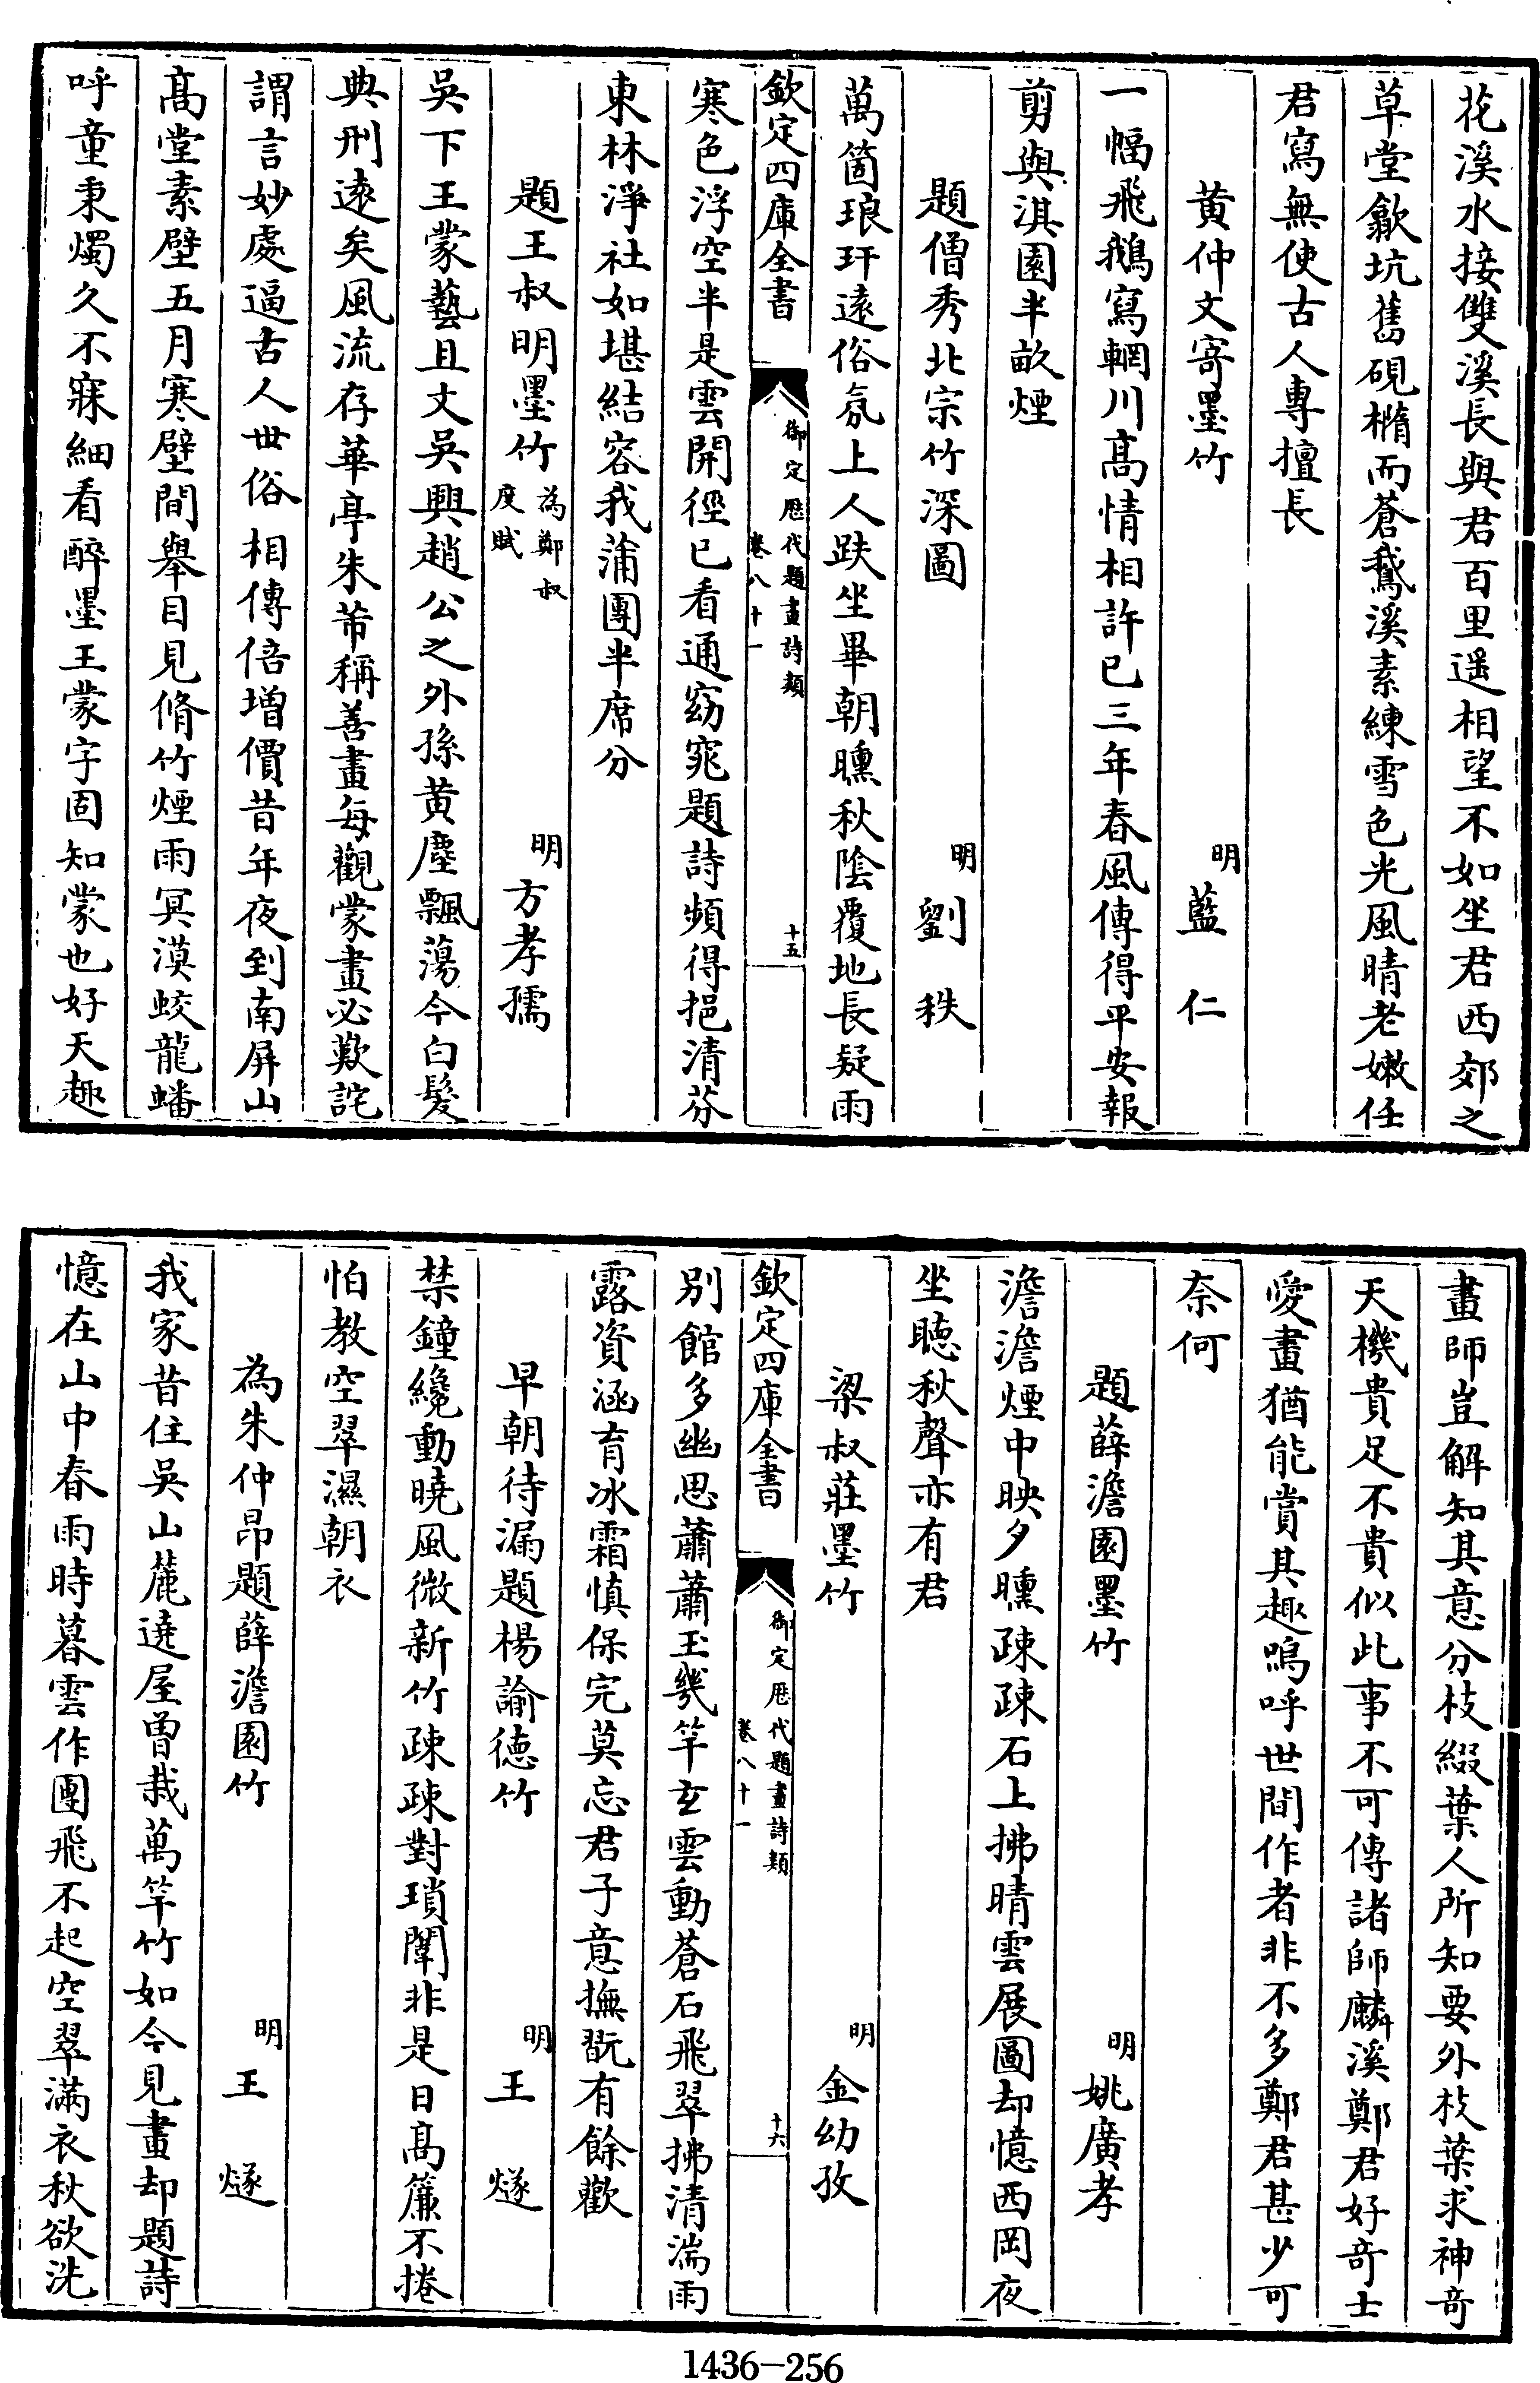 花溪水接雙溪長與君百里遥相望不如坐君西郊之
草堂歙坑舊硯橢而蒼鵞溪素練雪色光風晴老嫩任
君寫無使古人專擅長
黄仲文寄墨竹　明藍仁
一幅飛鵝寫輞川髙情相許已三年春風傳得平安報
剪與淇園半畝煙
題僧秀北宗竹深圖　明劉秩
萬箇琅玕逺俗氛上人趺坐畢朝曛秋陰覆地長疑雨
欽定四庫全書　御定厯代題畫詩類　卷八十一　十五
寒色浮空半是雲開徑已看通窈窕題詩頻得挹清芬
東林淨社如堪結容我蒲團半席分
題王叔明墨竹為鄭叔度賦　明方孝孺
吳下王蒙藝且文吳興趙公之外孫黄塵飄蕩今白髪
典刑逺矣風流存華亭朱芾稱善畫每觀蒙畫必歎詫
謂言妙處逼古人世俗相傳倍增價昔年夜到南屏山
髙堂素壁五月寒壁間舉目見脩竹煙雨冥漠蛟龍蟠
呼童秉燭久不寐細看醉墨王蒙字固知蒙也好天趣
畫師豈解知其意分枝綴葉人所知要外枝葉求神竒
天機貴足不貴似此事不可傳諸師麟溪鄭君好竒士
愛畫猶能賞其趣嗚呼世間作者非不多鄭君甚少可
奈何
題薛澹園墨竹　明姚廣孝
澹澹煙中映夕曛疎疎石上拂晴雲展圖却憶西岡夜
坐聴秋聲亦有君
梁叔莊墨竹　明金幼孜
欽定四庫全書　御定厯代題畫詩類　卷八十一　十六
别館多幽思蕭蕭玉幾竿玄雲動蒼石飛翠拂清湍雨
露資涵育冰霜慎保完莫忘君子意撫翫有餘歡
早朝待漏題楊諭徳竹　明王燧
禁鐘纔動曉風微新竹疎疎對瑣闈非是日髙簾不捲
怕教空翠濕朝衣
為朱仲昂題薛澹園竹　明王燧
我家昔住吳山麓遶屋曽栽萬竿竹如今見畫却題詩
憶在山中春雨時暮雲作團飛不起空翠滿衣秋欲洗
1436—256